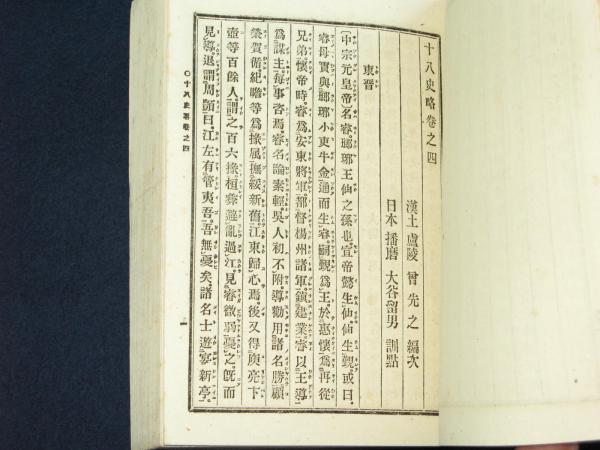 十八史略卷之四
漢土 盧陵 曾先之 編次
日本 播磨 大谷留男 訓點
東晉
中宗元皇帝名睿。瑯琊王伷之孫也。宣帝懿生伷。伷生覲。或曰。
睿母賈與瑯琊小吏牛金通而生睿。嗣覲爲王。於惠懷爲再從
兄弟。懷帝時。睿爲安東將軍。都督楊州諸軍。鎭建業。睿以王導
爲謀主。每事咨焉。睿名論素輕。吳人初不附。導勸用諸名勝顧
榮賀循紀瞻等爲掾屬。撫綏新舊。江東歸心焉。後又得庾亮卞
壺等百餘人。謂之百六掾。桓彝避亂過江。見睿微弱憂之。旣而
見導。退謂周顗曰。江左有管夷吾。吾無憂矣。諸名士遊宴新亭。
〇十八史略卷之四
一